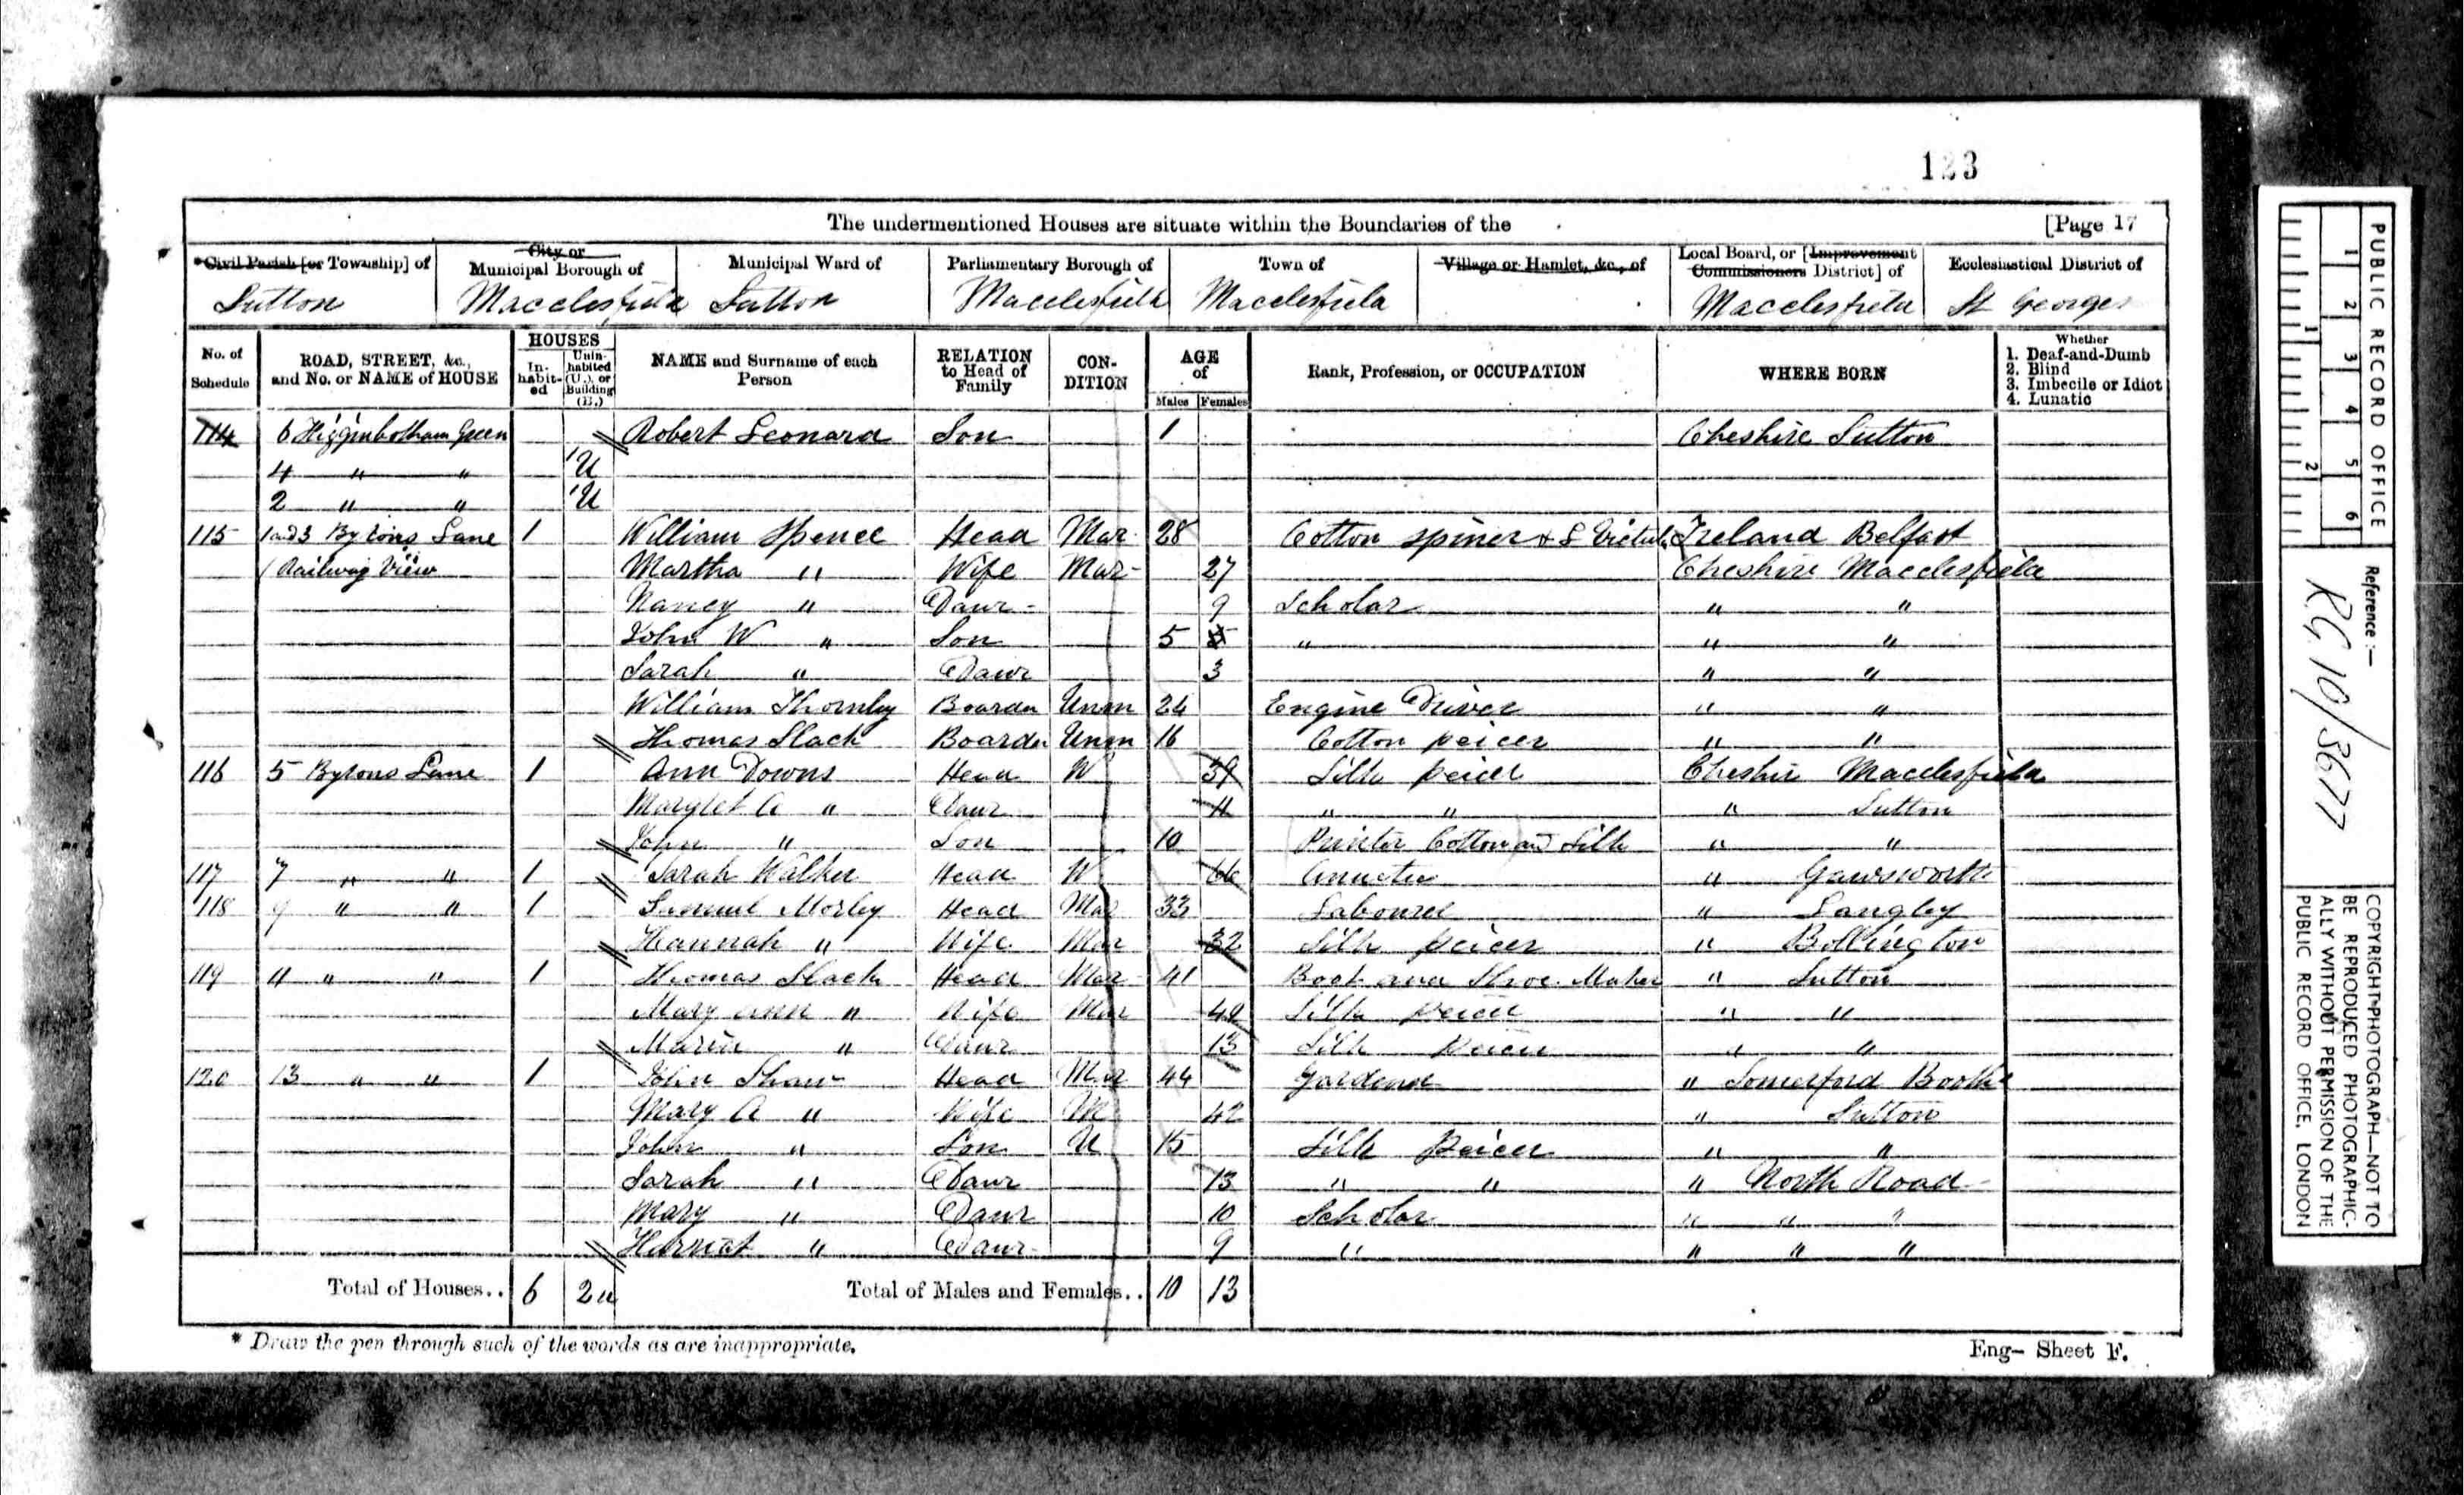 123
The undermentioned Houses are situate within the Boundaries of the [Page 17
*Civil Parish [or Township] of
City or Municipal Borough of
Municipal Ward of
Parliamentary Borough of
Town of
Village or Hamlet, &c., of
Local Board, or [Improvement Commissioners District] of
Ecclesiastical District of
Sutton Macclesfield Sutton Macclesfield Macclesfield Macclesfield St Georges
No. of Schedule
ROAD, STREET, &c., and No. or NAME of HOUSE
HOUSES
In-habit-ed
Unin-habited (U.), or Building (B.)
NAME and Surname of each Person
RELATION to Head of Family
CON-DITION
AGE of
Males Females
Rank, Profession, or OCCUPATION
WHERE BORN
Whether
1. Deaf-and-Dumb
2. Blind
3. Imbecile or Idiot
4. Lunatic
114 6 Higginbotham Green Robert Leonard Son 1 Cheshire Sutton
4 " " 1 U
2 " " 1 U
115 1 and 3 Byrons Lane 1 William Spence Head Mar 28 Cotton spiner & L Victul Ireland Belfast
1 Railway View Martha " Wife Mar- 27 Cheshire Macclesfield
Nancy " Daur- 9 Scholar " "
John W " Son 5 5 " " "
Sarah " Daur 3 " "
William Thornley Boarder Unm 24 Engine Driver " "
Thomas Slack Boarder Unm 16 Cotton peicer " "
116 5 Byrons Lane 1 Ann Downs Head W 39 Silk peicer Cheshire Macclesfield
A " Daur 11 " " " Sutton
John " Son 10 Cotton and Silk " "
117 7 " " 1 Sarah Walker Head W 66 " Gawsworth
118 9 " " 1 Samuel Morley Head Mar 33 Labourer " Langley
Hannah " Wife Mar 32 Silk peicer " Bollington
119 11 " " 1 Thomas Slack Head Mar- 41 Boot and Shoe Maker " Sutton
Mary ann " Wife Mar Silk peicer " "
Maria " Daur 13 Silk peicer " "
120 13 " " 1 John Shaw Head Mar 44 Gardener " Somerford Booths
Mary A " Wife M 42 " Sutton
John " Son U 15 Silk peicer " "
Sarah " Daur 13 " " " North Road
Mary " Daur 10 Scholar " " "
" Daur- 9 " " " "
Total of Houses.. 6 2 u Total of Males and Females.. 10 13
* Draw the pen through such of the words as are inappropriate.
Eng- Sheet F.
PUBLIC RECORD OFFICE
1 2 3 4 5 6
1 2
Reference :-
RG 10/3677
COPYRIGHT PHOTOGRAPH—NOT TO
BE REPRODUCED PHOTOGRAPHIC-
ALLY WITHOUT PERMISSION OF THE
PUBLIC RECORD OFFICE, LONDON